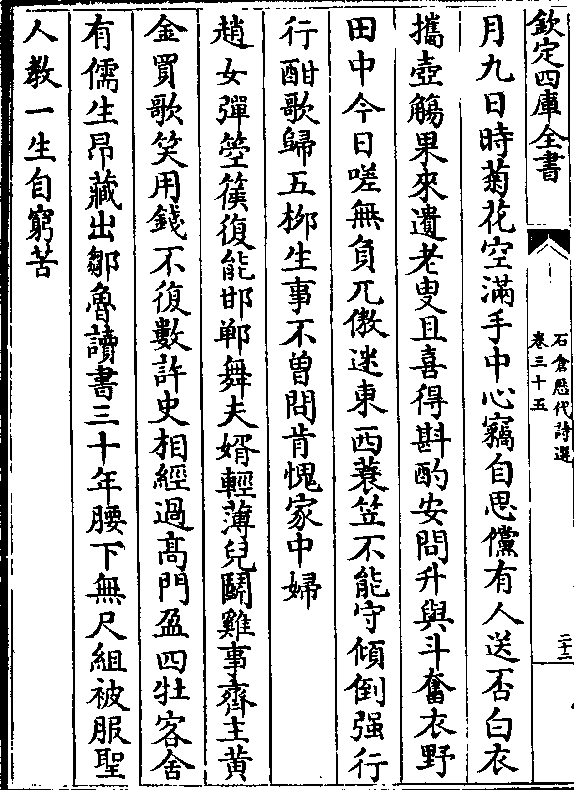 欽定四庫全書
石倉歴代詩選
卷三十五
二十二
月九日時菊花空滿手中心竊自思儻有人送否白衣
攜壺觴果來遺老叟且喜得斟酌安問升與斗奮衣野
田中今日嗟無負兀傲迷東西蓑笠不能守傾倒强行
行酣歌歸五栁生事不曽問肯愧家中婦
趙女彈箜篌復能邯鄲舞夫婿輕薄兒鬬雞事齊主黄
金買歌笑用錢不復數許史相經過髙門盈四牡客舍
有儒生昂藏出鄒魯讀書三十年腰下無尺組被服聖
人教一生自窮苦